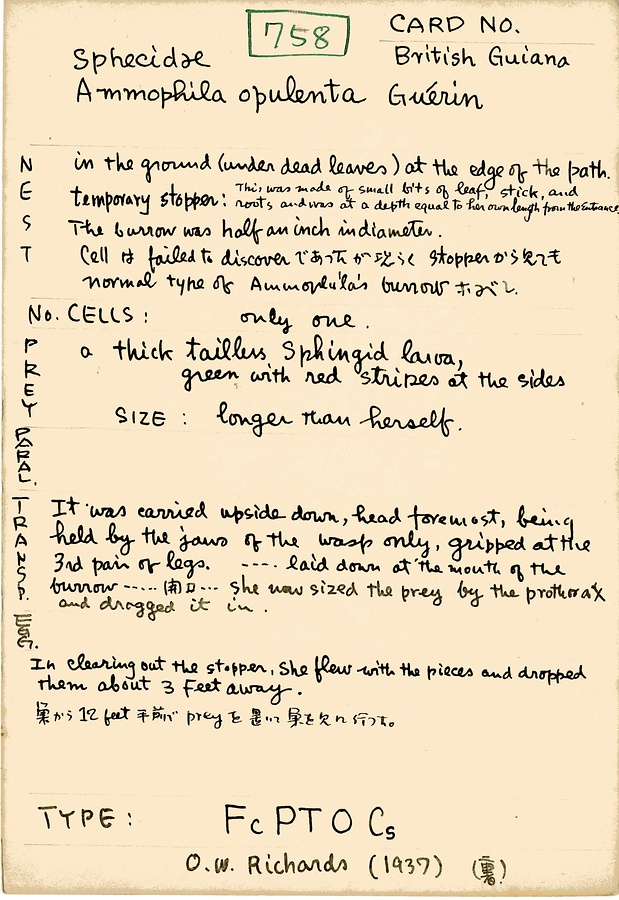 758
CARD NO.
Sphecidae
British Guiana
Ammophila opulenta Guérin
NEST
in the ground (under dead leaves) at the edge of the path.
temporary stopper: This was made of small bits of leaf, stick, and
roots and was at a depth equal to her own length from the entrance
The burrow was half an inch in diameter.
Cell は failed to discover であったが恐らく stopper から見ても
normal type of Ammophila's burrow ナルベシ.
No. CELLS: only one.
PREY
a thick tailless Sphingid larva,
green with red stripes at the sides
SIZE: longer than herself.
PARAL.
TRANSP.
It was carried upside down, head foremost, being
held by the jaws of the wasp only, gripped at the
3rd pair of legs. ---- laid down at the mouth of the
burrow ----- (開口 --- she now sized the prey by the prothorax
and dragged it in.
EGG.
In clearing out the stopper, she flew with the pieces and dropped
them about 3 feet away.
巣から 12 feet 手前で prey を置いて巣を見に行つた。
TYPE: Fc PTO Cs
O.W. Richards (1937)